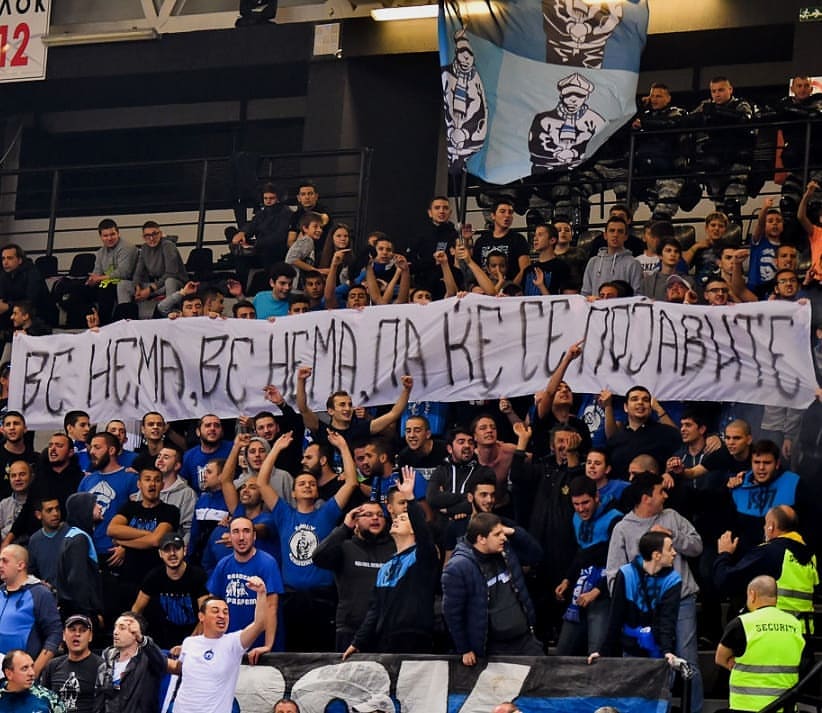 ЛОК
12
ВЕ НЕМА, ВЕ НЕМА, ПА ЌЕ СЕ ПОЈАВИТЕ
SECURITY